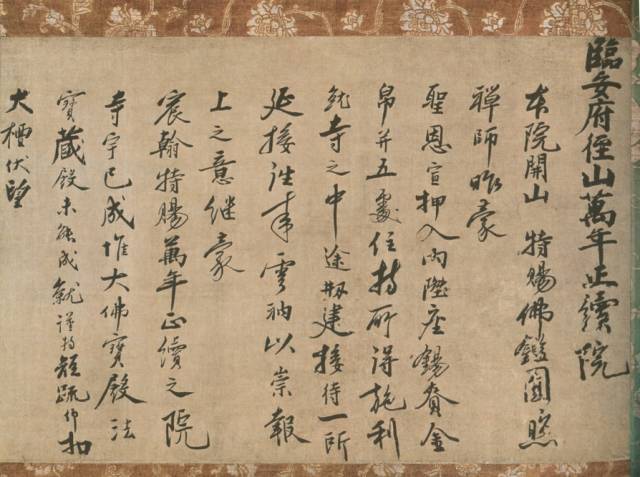 臨安府徑山萬年正續院
本院開山　特賜佛鑑圓照
禪師昨蒙
聖恩宣押入內陞座錫賚金
帛并五處住持所得施利
就寺之中途剏建接待一所
延接往來雲衲以崇報
上之意継蒙
宸翰特賜萬年正續之院
寺宇已成惟大佛寶殿法
寶藏殿未能成就謹持短疏仰扣
大檀伏望